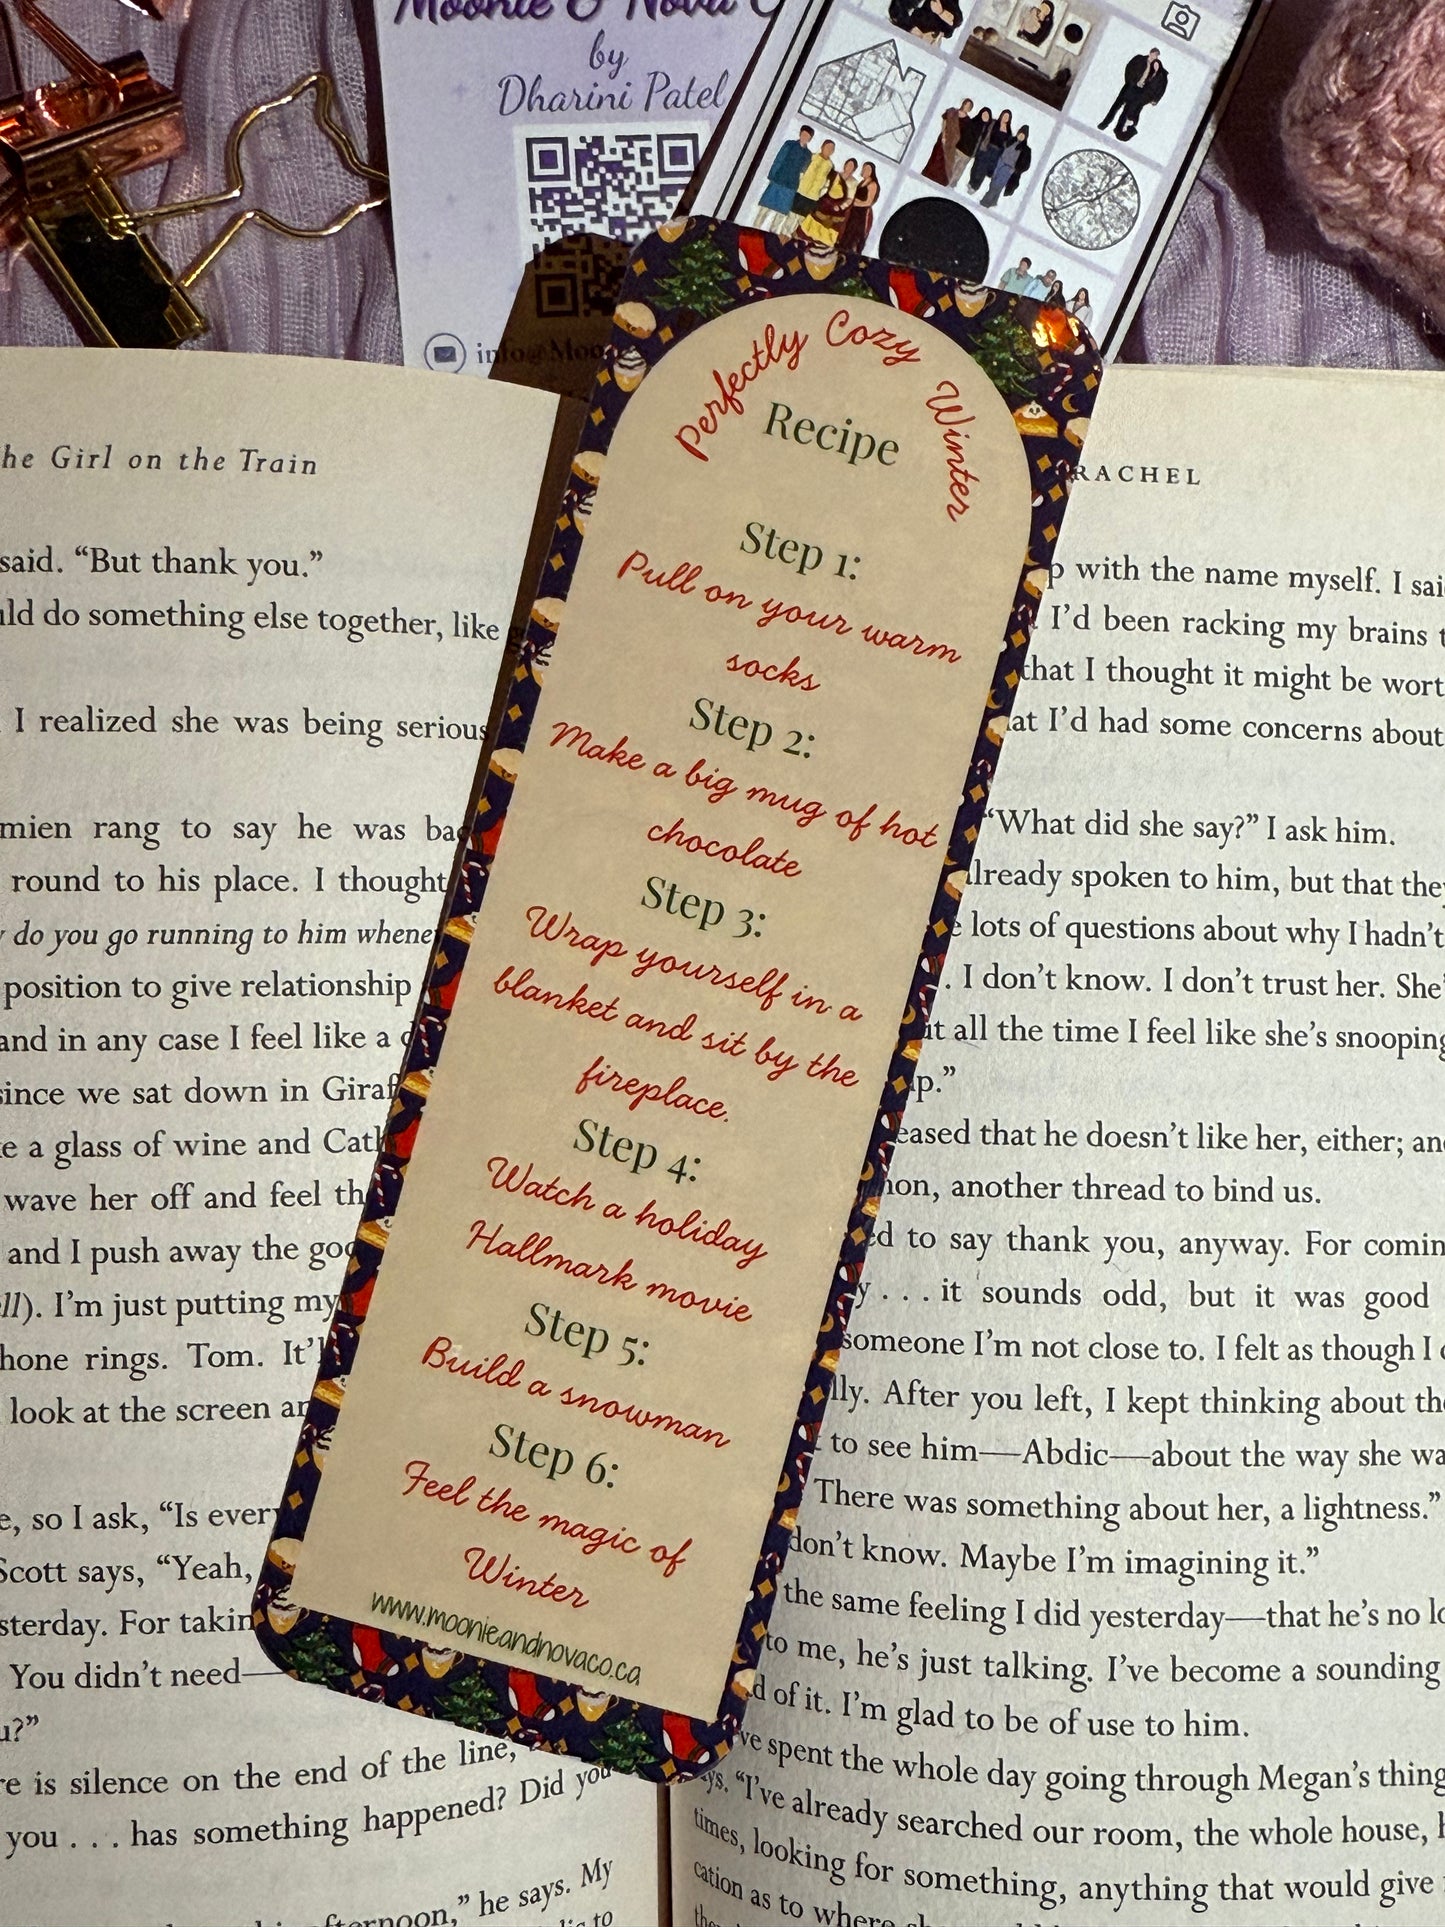 Moonie & Nova
by
Dharini Patel
info@Moo
Perfectly Cozy Winter
Recipe
Step 1:
Pull on your warm
socks
Step 2:
Make a big mug of hot
chocolate
Step 3:
Wrap yourself in a
blanket and sit by the
fireplace.
Step 4:
Watch a holiday
Hallmark movie
Step 5:
Build a snowman
Step 6:
Feel the magic of
Winter
www.moonieandnovaco.ca
he Girl on the Train
said. “But thank you.”
ld do something else together, like
I realized she was being serious
mien rang to say he was bac
round to his place. I thought
do you go running to him whene
position to give relationship
and in any case I feel like a
since we sat down in Giraf
e a glass of wine and Cath
wave her off and feel th
and I push away the goo
ll). I’m just putting my
hone rings. Tom. It’l
look at the screen an
e, so I ask, “Is every
Scott says, “Yeah,
sterday. For takin
You didn’t need—
u?”
re is silence on the end of the line,
you . . . has something happened? Did you
ternoon,” he says. My
to
RACHEL
p with the name myself. I sai
I’d been racking my brains t
that I thought it might be wort
at I’d had some concerns about
“What did she say?” I ask him.
lready spoken to him, but that they
lots of questions about why I hadn’t
. I don’t know. I don’t trust her. She’
it all the time I feel like she’s snooping
p.”
eased that he doesn’t like her, either; an
on, another thread to bind us.
d to say thank you, anyway. For comin
y . . . it sounds odd, but it was good
someone I’m not close to. I felt as though I c
lly. After you left, I kept thinking about th
to see him—Abdic—about the way she wa
There was something about her, a lightness.”
don’t know. Maybe I’m imagining it.”
the same feeling I did yesterday—that he’s no lo
to me, he’s just talking. I’ve become a sounding
d of it. I’m glad to be of use to him.
ve spent the whole day going through Megan’s thing
ys. “I’ve already searched our room, the whole house, h
times, looking for something, anything that would give
cation as to where